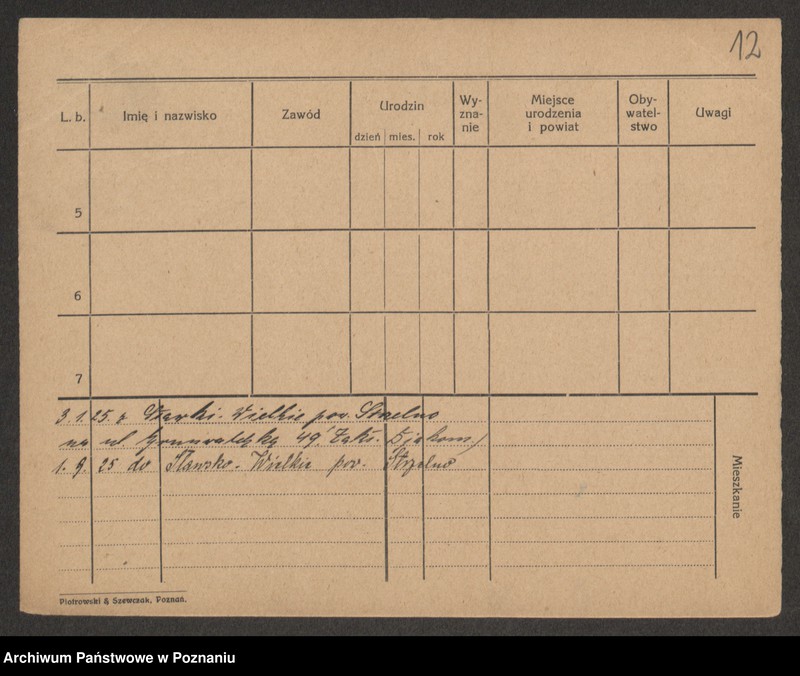 12
L. b. Imię i nazwisko Zawód Urodzin Wy-zna-nie Miejsce urodzenia i powiat Oby-watel-stwo Uwagi
dzień mies. rok
5
6
7
3 1. 25 z Wielkie pow. Strzelno
na ul 49
1. 9. 25 do Sławsko-Wielkie pow. Strzelno
Mieszkanie
Piotrowski & Szewczak, Poznań.
Archiwum Państwowe w Poznaniu